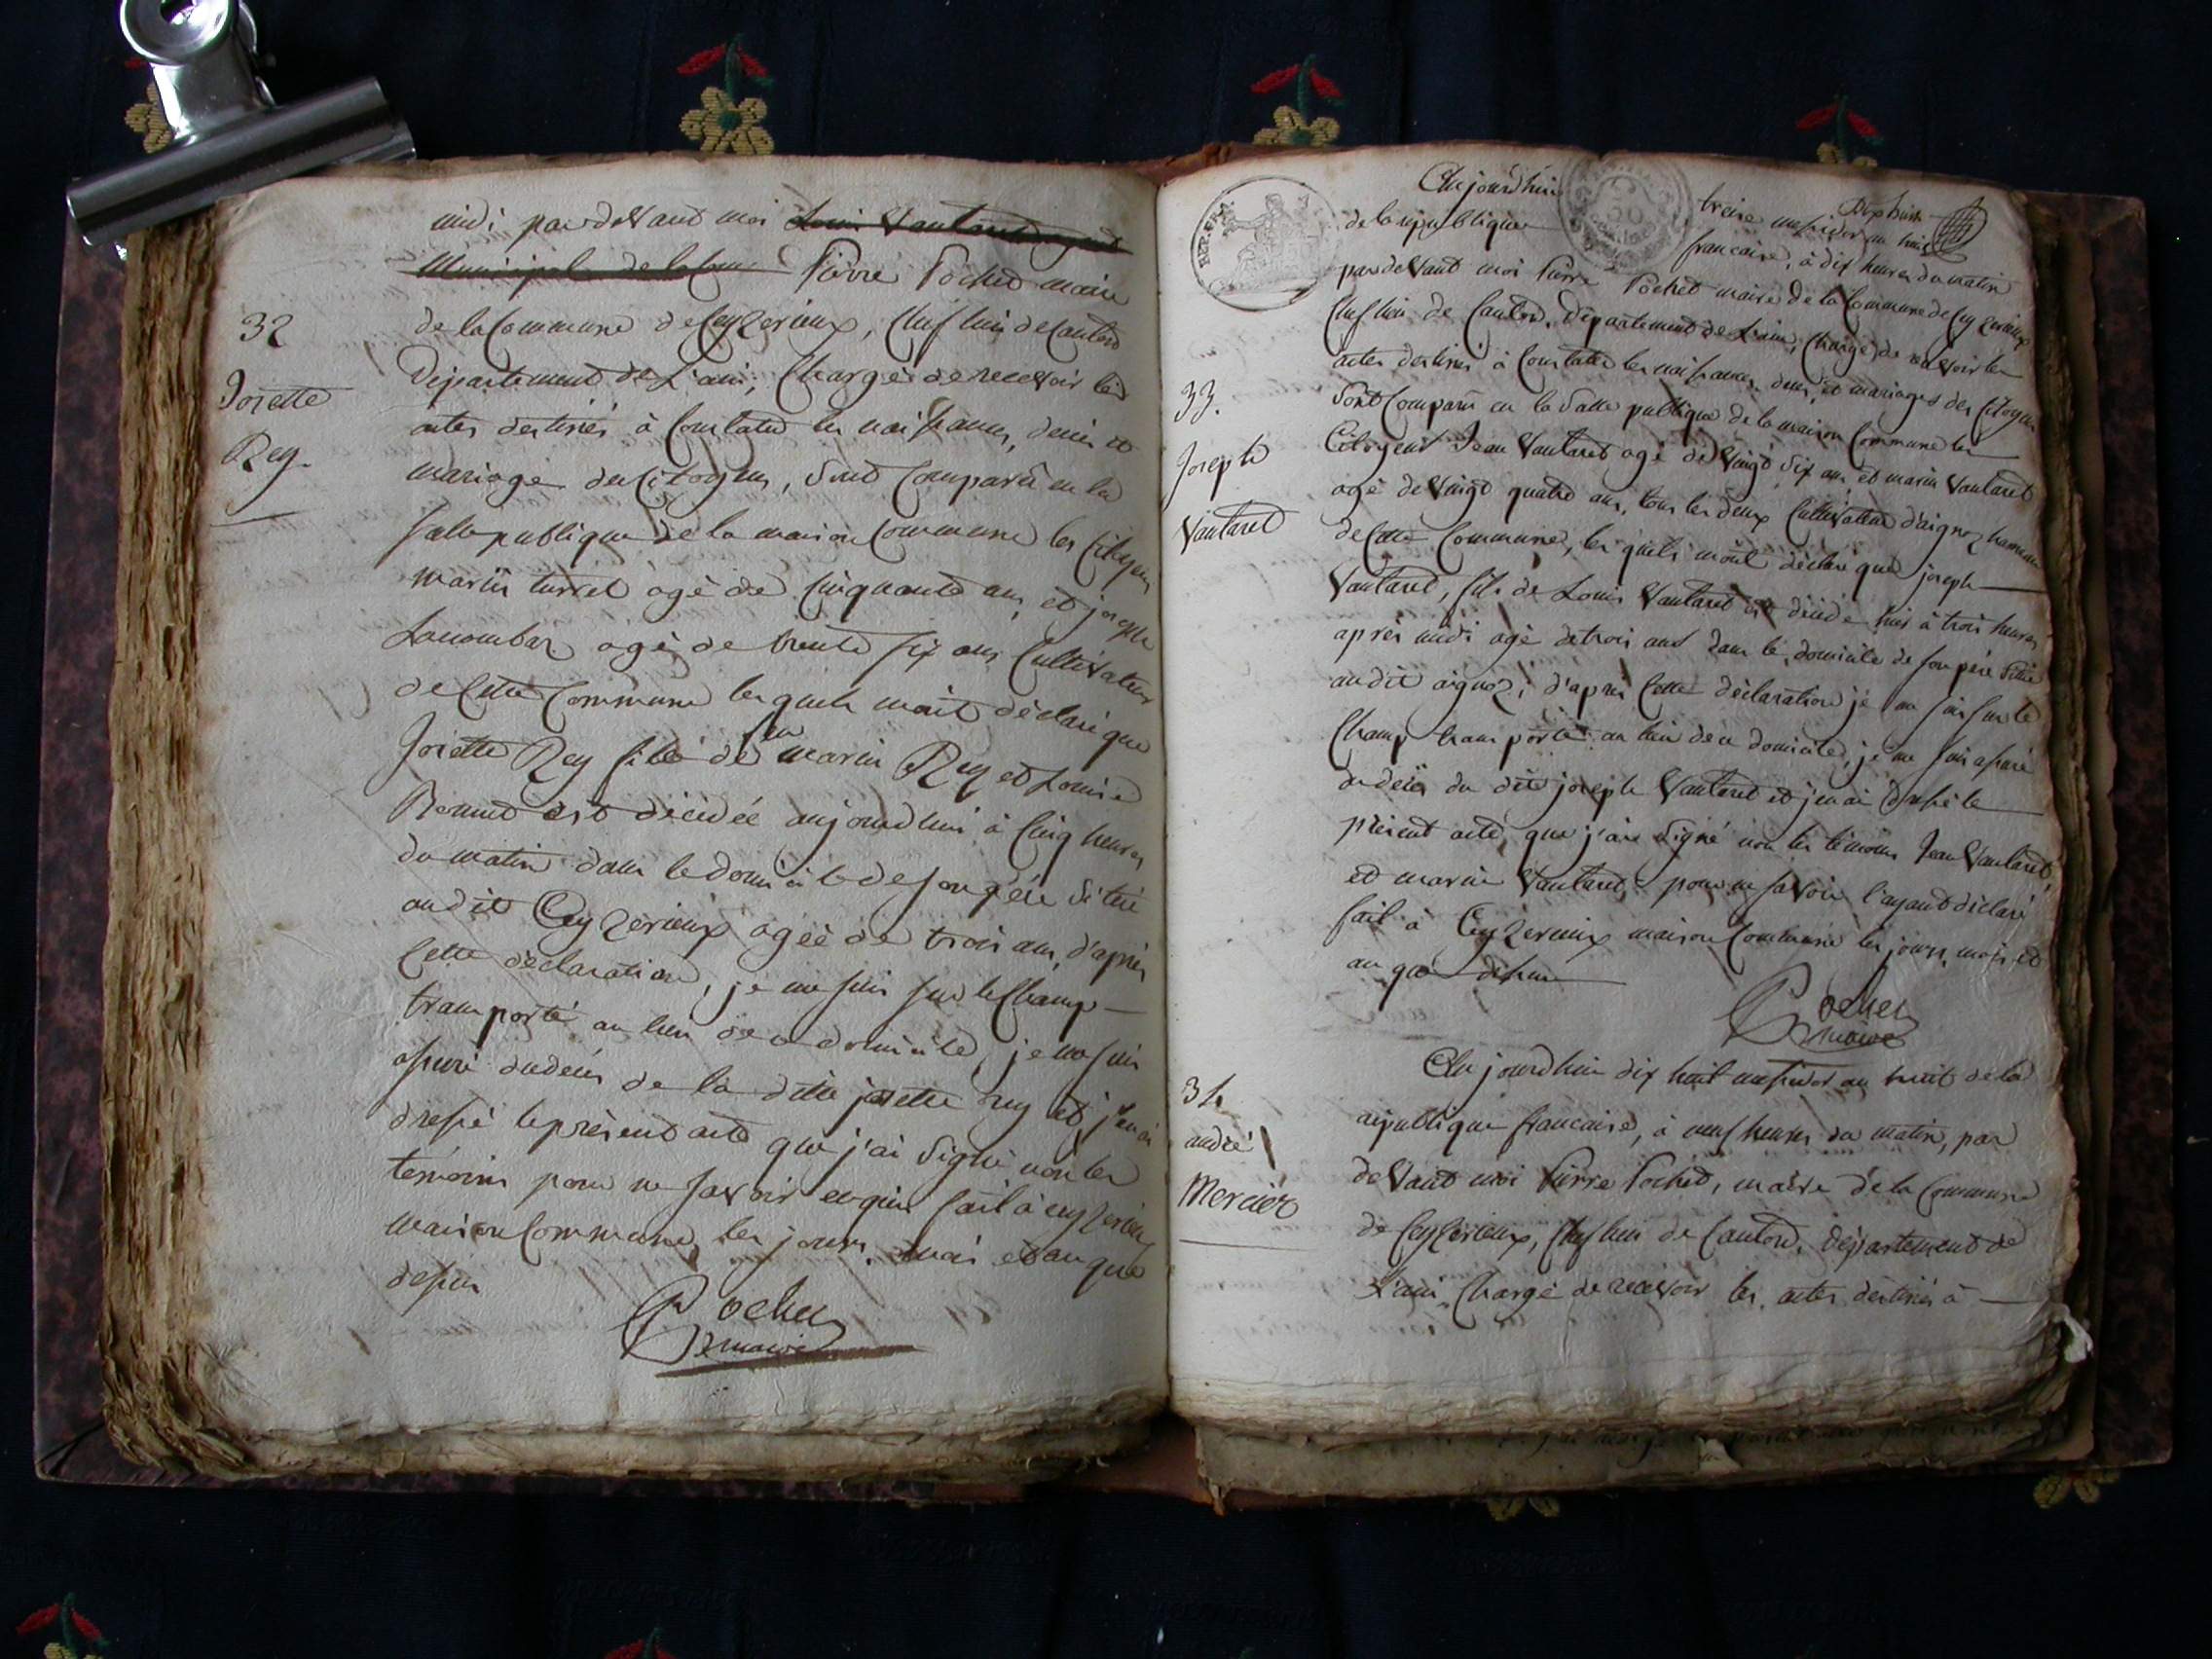 midi par devant moi Louis Vautaret agent
Municipal de la Com Pierre Pochet maire
32
de la Commune de Ceyzerieux, Chef lieu de Canton
Josette
Departement de L'ain, Chargé de recevoir les
Rey.
actes destinés à Constater les naissances, decès et
mariage des Citoyens, sont Comparû en la
salle publique de la maison Commune les Citoyens
marin turrel agé de Cinquante ans et joseph
agé de trente six ans Cultivateur
de Cette Commune les quels m'ont déclaré que
Josette Rey fille de feu marin Rey et Louise
est décédée aujourd'hui à Cinq heures
du matin dans le domicile de son père Situé
au dit Ceyzerieux agée de trois ans, d'après
Cette déclaration, je me suis sur le Champ
transporté au lieu de ce domicile, je me suis
assuré du decès de la ditte josette rey et j'en ai
dressé le présent acte que j'ai signé non les
temoins pour ne savoir enquis fait à Ceyzerieux
maison Commune, les jours, mois et an que
dessus
Pochet
maire
REP. FRA.
Dixhuit
Aujourdhuit treize messidor an huit
de la republique francaise, à dix heures du matin
par devant moi Pierre Pochet maire de la Commune de Ceyzerieux
Chef lieu de Canton, Département de L'ain, Chargé de recevoir les
actes destinés à Constater les naissances, decès, et mariages des Citoyens
33.
Sont Comparû en la Salle publique de la maison Commune les
Joseph
Citoyens Jean Vautaret agé de Vingt Six ans et marin Vautaret
agé de Vingt quatre ans, tous les deux Cultivateur d'aignoz hameau
Vautaret
de Cette Commune, les quels m'ont déclaré que joseph
Vautaret, fils de Louis Vautaret est décédé hier à trois heures
après midi agé de trois ans dans le domicile de son père Situé
au dit aignoz, d'après Cette déclaration je me suis sur le
Champ transporté au lieu de ce domicile, je me suis assuré
du decès du dit joseph Vautaret et j'en ai dressé le
présent acte que j'ai signé non les témoins Jean Vautaret
et marin Vautaret pour ne savoir l'ayant déclaré
fait à Ceyzerieux maison Commune les jours, mois et
an que dessus
Pochet
maire
34
Aujourdhuit dix huit messidor an huit de la
andré
republique francaise, à neuf heures du matin, par
Mercier
devant moi Pierre Pochet, maire de la Commune
de Ceyzerieux, Chef lieu de Canton, Département de
L'ain, Chargé de recevoir les actes destinés à